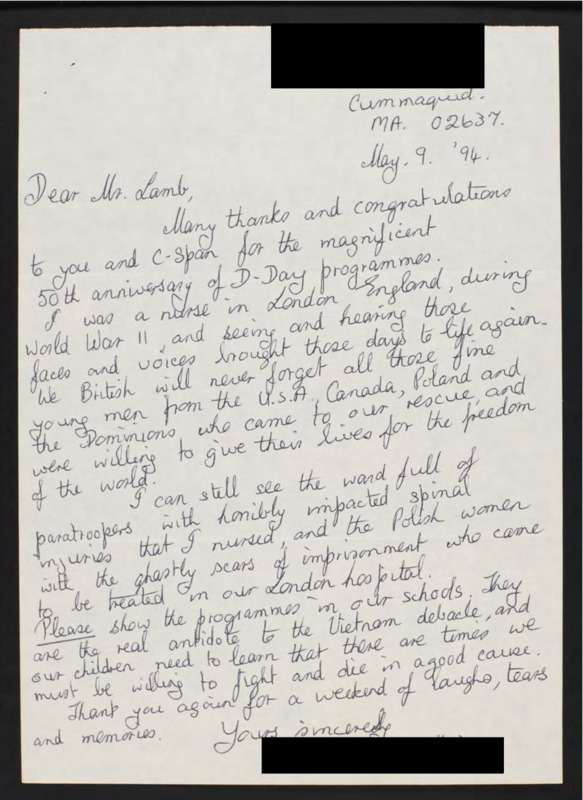 Cummaquid.
MA. 02637.
May. 9. '94.
Dear Mr. Lamb,
Many thanks and congratulations
to you and C-Span for the magnificent
50th anniversary of D-Day programmes.
I was a nurse in London England, during
World War II, and seeing and hearing those
faces and voices brought those days to life again.
We British will never forget all those fine
young men from the U.S.A., Canada, Poland and
the Dominions who came to our rescue, and
were willing to give their lives for the freedom
of the world.
I can still see the ward full of
paratroopers with horribly impacted spinal
injuries that I nursed, and the Polish women
with the ghastly scars of imprisonment who came
to be treated in our London hospital.
Please show the programmes in our schools. They
are the real antidote to the Vietnam debacle, and
our children need to learn that there are times we
must be willing to fight and die in a good cause.
Thank you again for a weekend of laughs, tears
and memories.
Yours sincerely